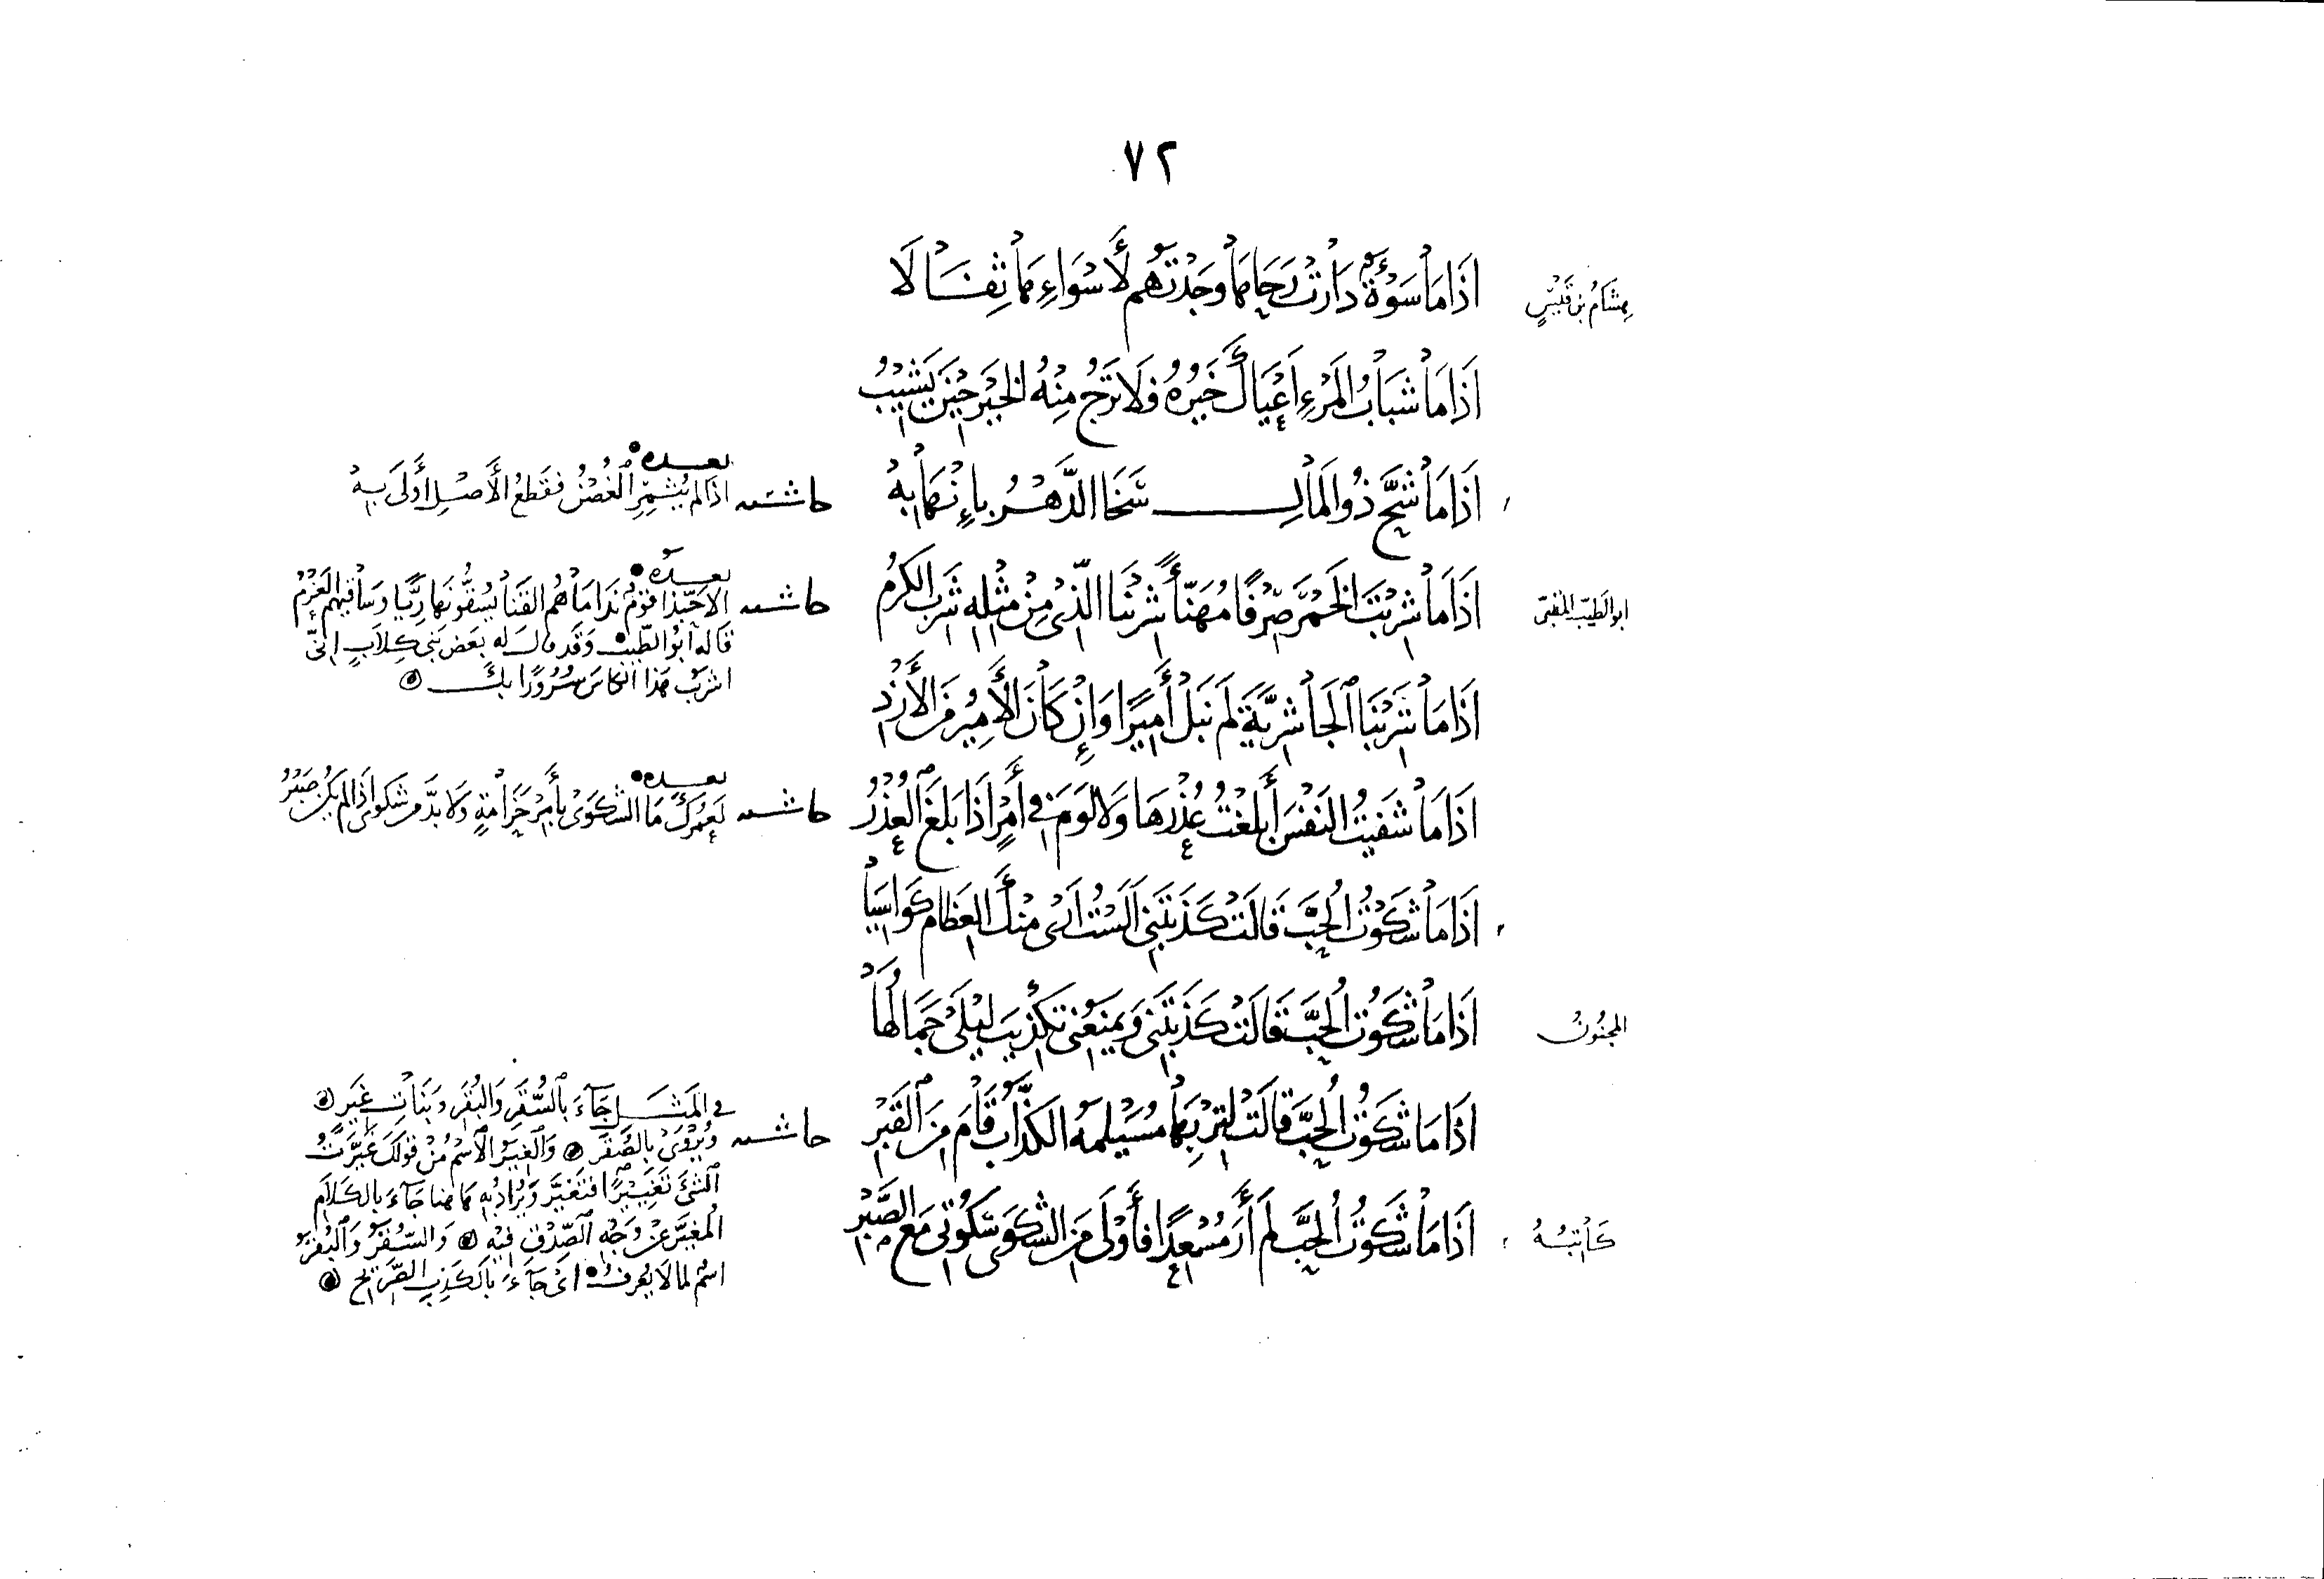 ٧٢
هشام بن قيس
اذا ما سوءة دارت رحاها وجدتهم لأسواء مها ثفالا
اذا ما شباب المرء أعيالك خيره فلا ترج منه الخير حين يشيب
اذا ما شح ذو المال سخا الدهر بإنهابه
حاشية
بعده
اذا لم يثمر الغصن فقطع الأصل أولى به
ابو الطيب المتنبي
اذا ما شربت الخمر صرفا مهنأ شربنا الذي من مثله شرب الكرم
حاشية
بعده
الا حبذا قوم نداماهم القنا يسقونها ريا وساقيهم العزم
قاله ابو الطيب وقد قال له بعض بني كلاب إني
اشرب هذا الكاس سرورا بك
اذا ما شربنا الجاشرية لم نبل أميرا وإن كان الأمير من الأزد
اذا ما شفيت النفس أبلغت عذرها ولا لوم في أمر اذا بلغ العذر
حاشية
بعده
لعمرك ما الشكوى بأمر حزامة ولا بد من شكوى اذا لم يكن صبر
اذا ما شكوت الحب قالت كذبتني ألست ارى منك العظام كواسيا
المجنون
اذا ما شكوت الحب قالت كذبتني ويمنعني تكذيب ليلى جمالها
اذا ما شكوت الحب قالت لتربها مسيلمة الكذاب قام من القبر
حاشية
في المثل جاء بالسقر والبقر وبنات غير
ويروى بالصقر والغير الاسم من قولك غيرت
الشئ تغييرا فتغير ويراد به هاهنا جاء بالكلام
المغير عن وجه الصدق فيه والسقر والبقر
اسم لما لا يعرف اي جاء بالكذب الصريح
كاتبه
اذا ما شكوت الحب لم أر مسعدا فأولى من الشكوى سكوتي مع الصبر